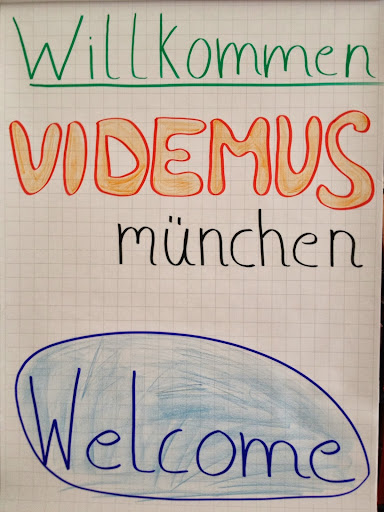 Willkommen
VIDEMUS
münchen
Welcome